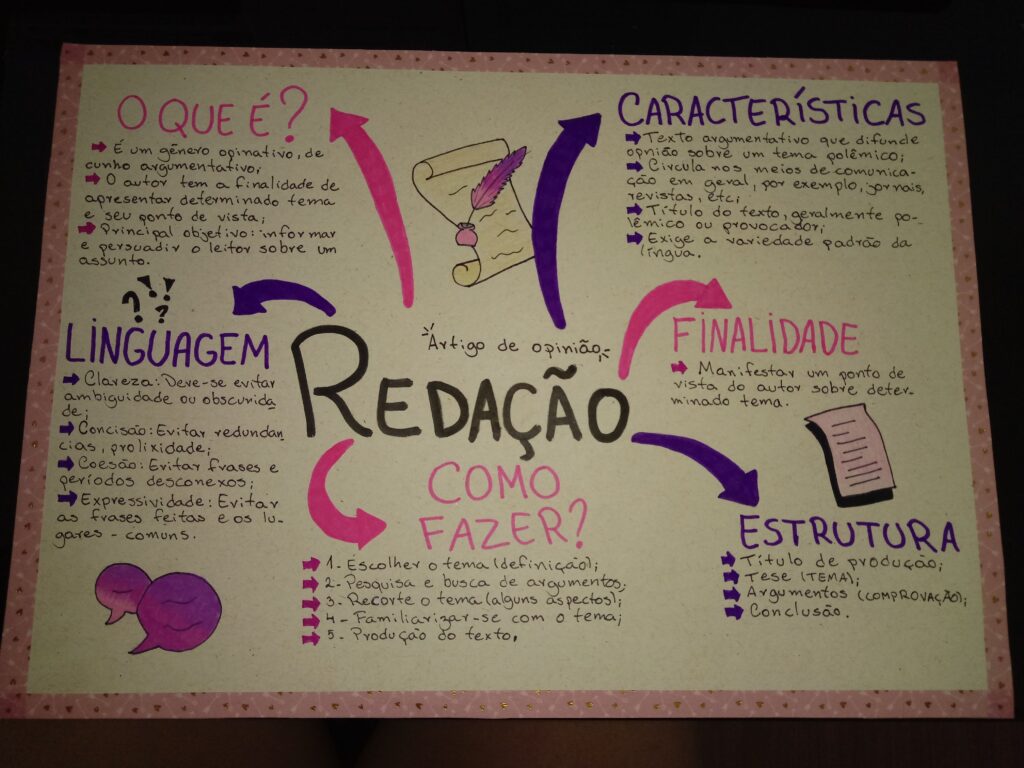 O QUE É?
É um gênero opinativo, de
cunho argumentativo;
O autor tem a finalidade de
apresentar determinado tema
e seu ponto de vista;
Principal objetivo: informar
e persuadir o leitor sobre um
assunto.
CARACTERÍSTICAS
Texto argumentativo que difunde
opnião sobre um tema polêmico;
Circula nos meios de comunica-
ção em geral, por exemplo, jornais,
revistas, etc;
Título do texto, geralmente po-
lêmico ou provocador;
Exige a variedade padrão da
língua.
LINGUAGEM
Clareza: Deve-se evitar
ambiguidade ou obscurida
de;
Concisão: Evitar redundan
cias, prolixidade;
Coesão: Evitar frases e
períodos desconexos;
Expressividade: Evitar
as frases feitas e os lu-
gares - comuns.
Artigo de opinião
REDAÇÃO
FINALIDADE
Manifestar um ponto de
vista do autor sobre deter-
minado tema.
COMO
FAZER?
1- Escolher o tema (definição);
2- Pesquisa e busca de argumentos;
3- Recorte o tema (alguns aspectos);
4- Familiarizar-se com o tema;
5- Produção do texto.
ESTRUTURA
Título de produção;
Tese (TEMA);
Argumentos (COMPROVAÇÃO);
Conclusão.